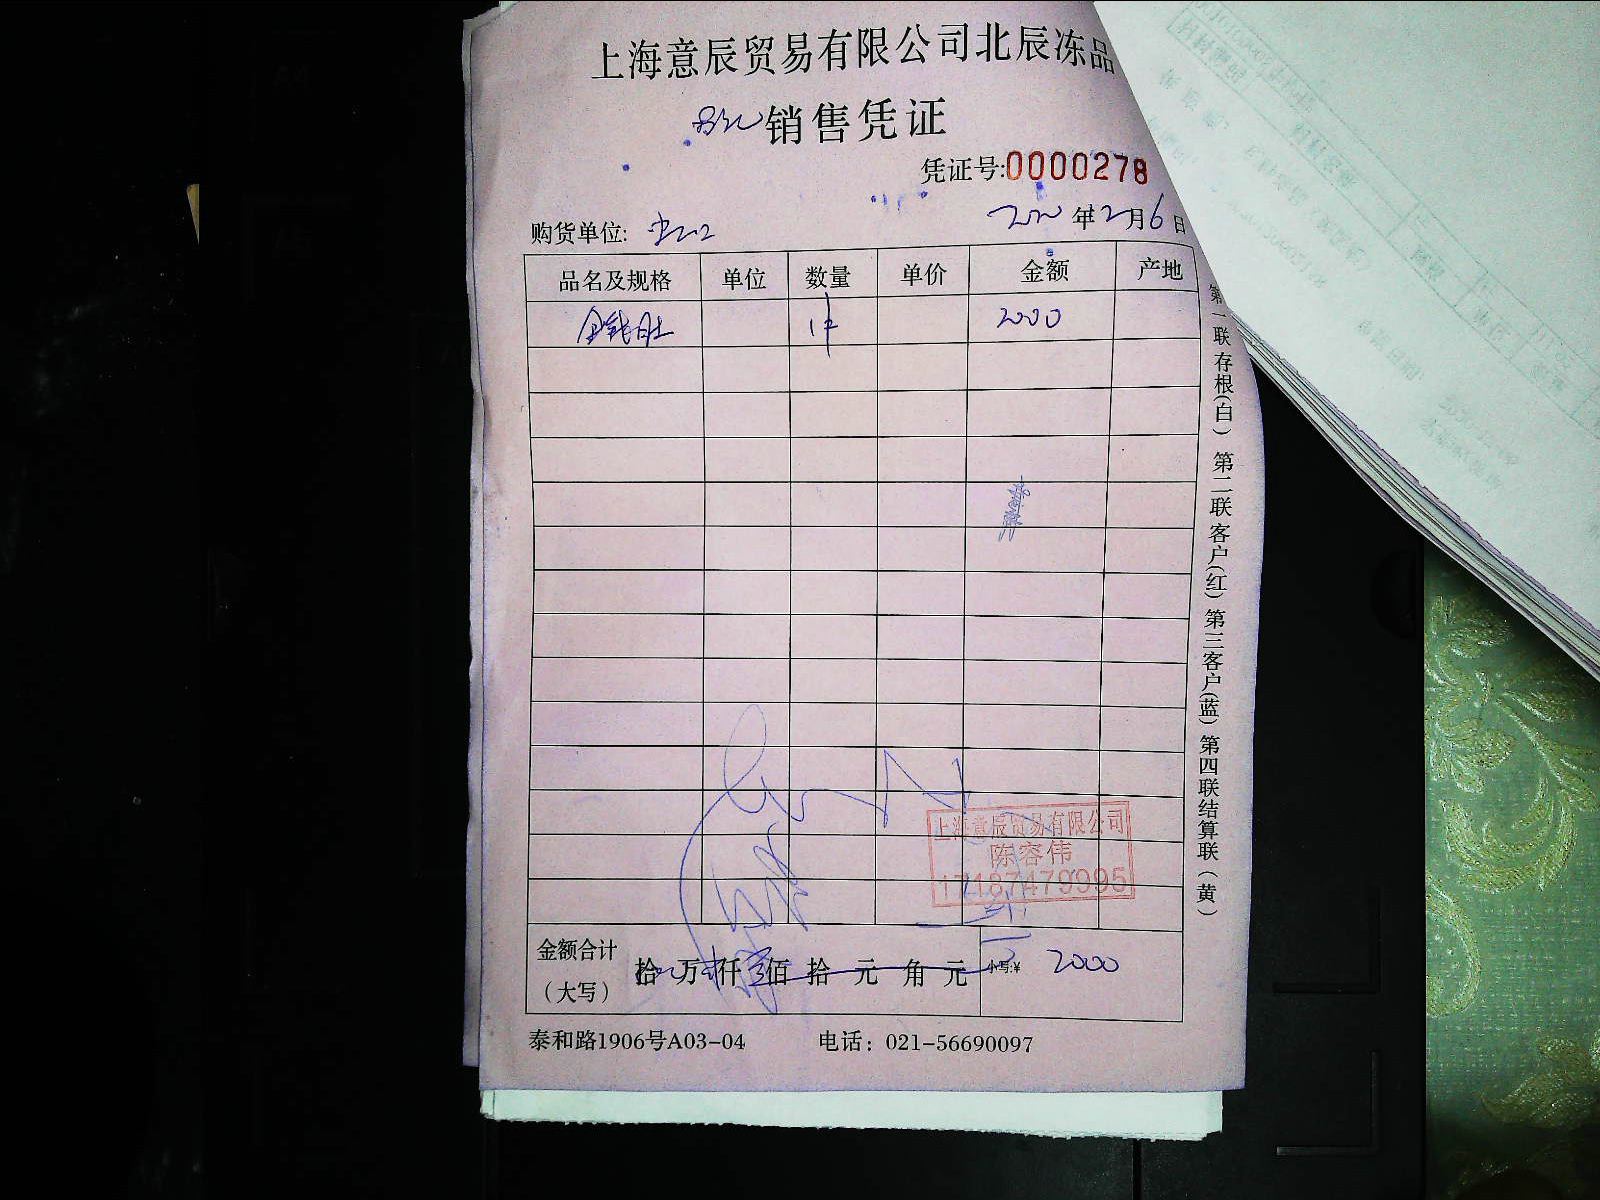 上海意辰贸易有限公司北辰冻品
销售凭证
凭证号:0000278
年2月6日
购货单位:
品名及规格 单位 数量 单价 金额 产地
金钱肚 1件 2000
上海意辰贸易有限公司
陈容伟
17187479995
金额合计
(大写)
拾 万 仟 佰 拾 元 角 元 小写:¥ 2000
泰和路1906号A03-04 电话：021-56690097
第一联存根(白) 第二联客户(红) 第三客户(蓝) 第四联结算联(黄)